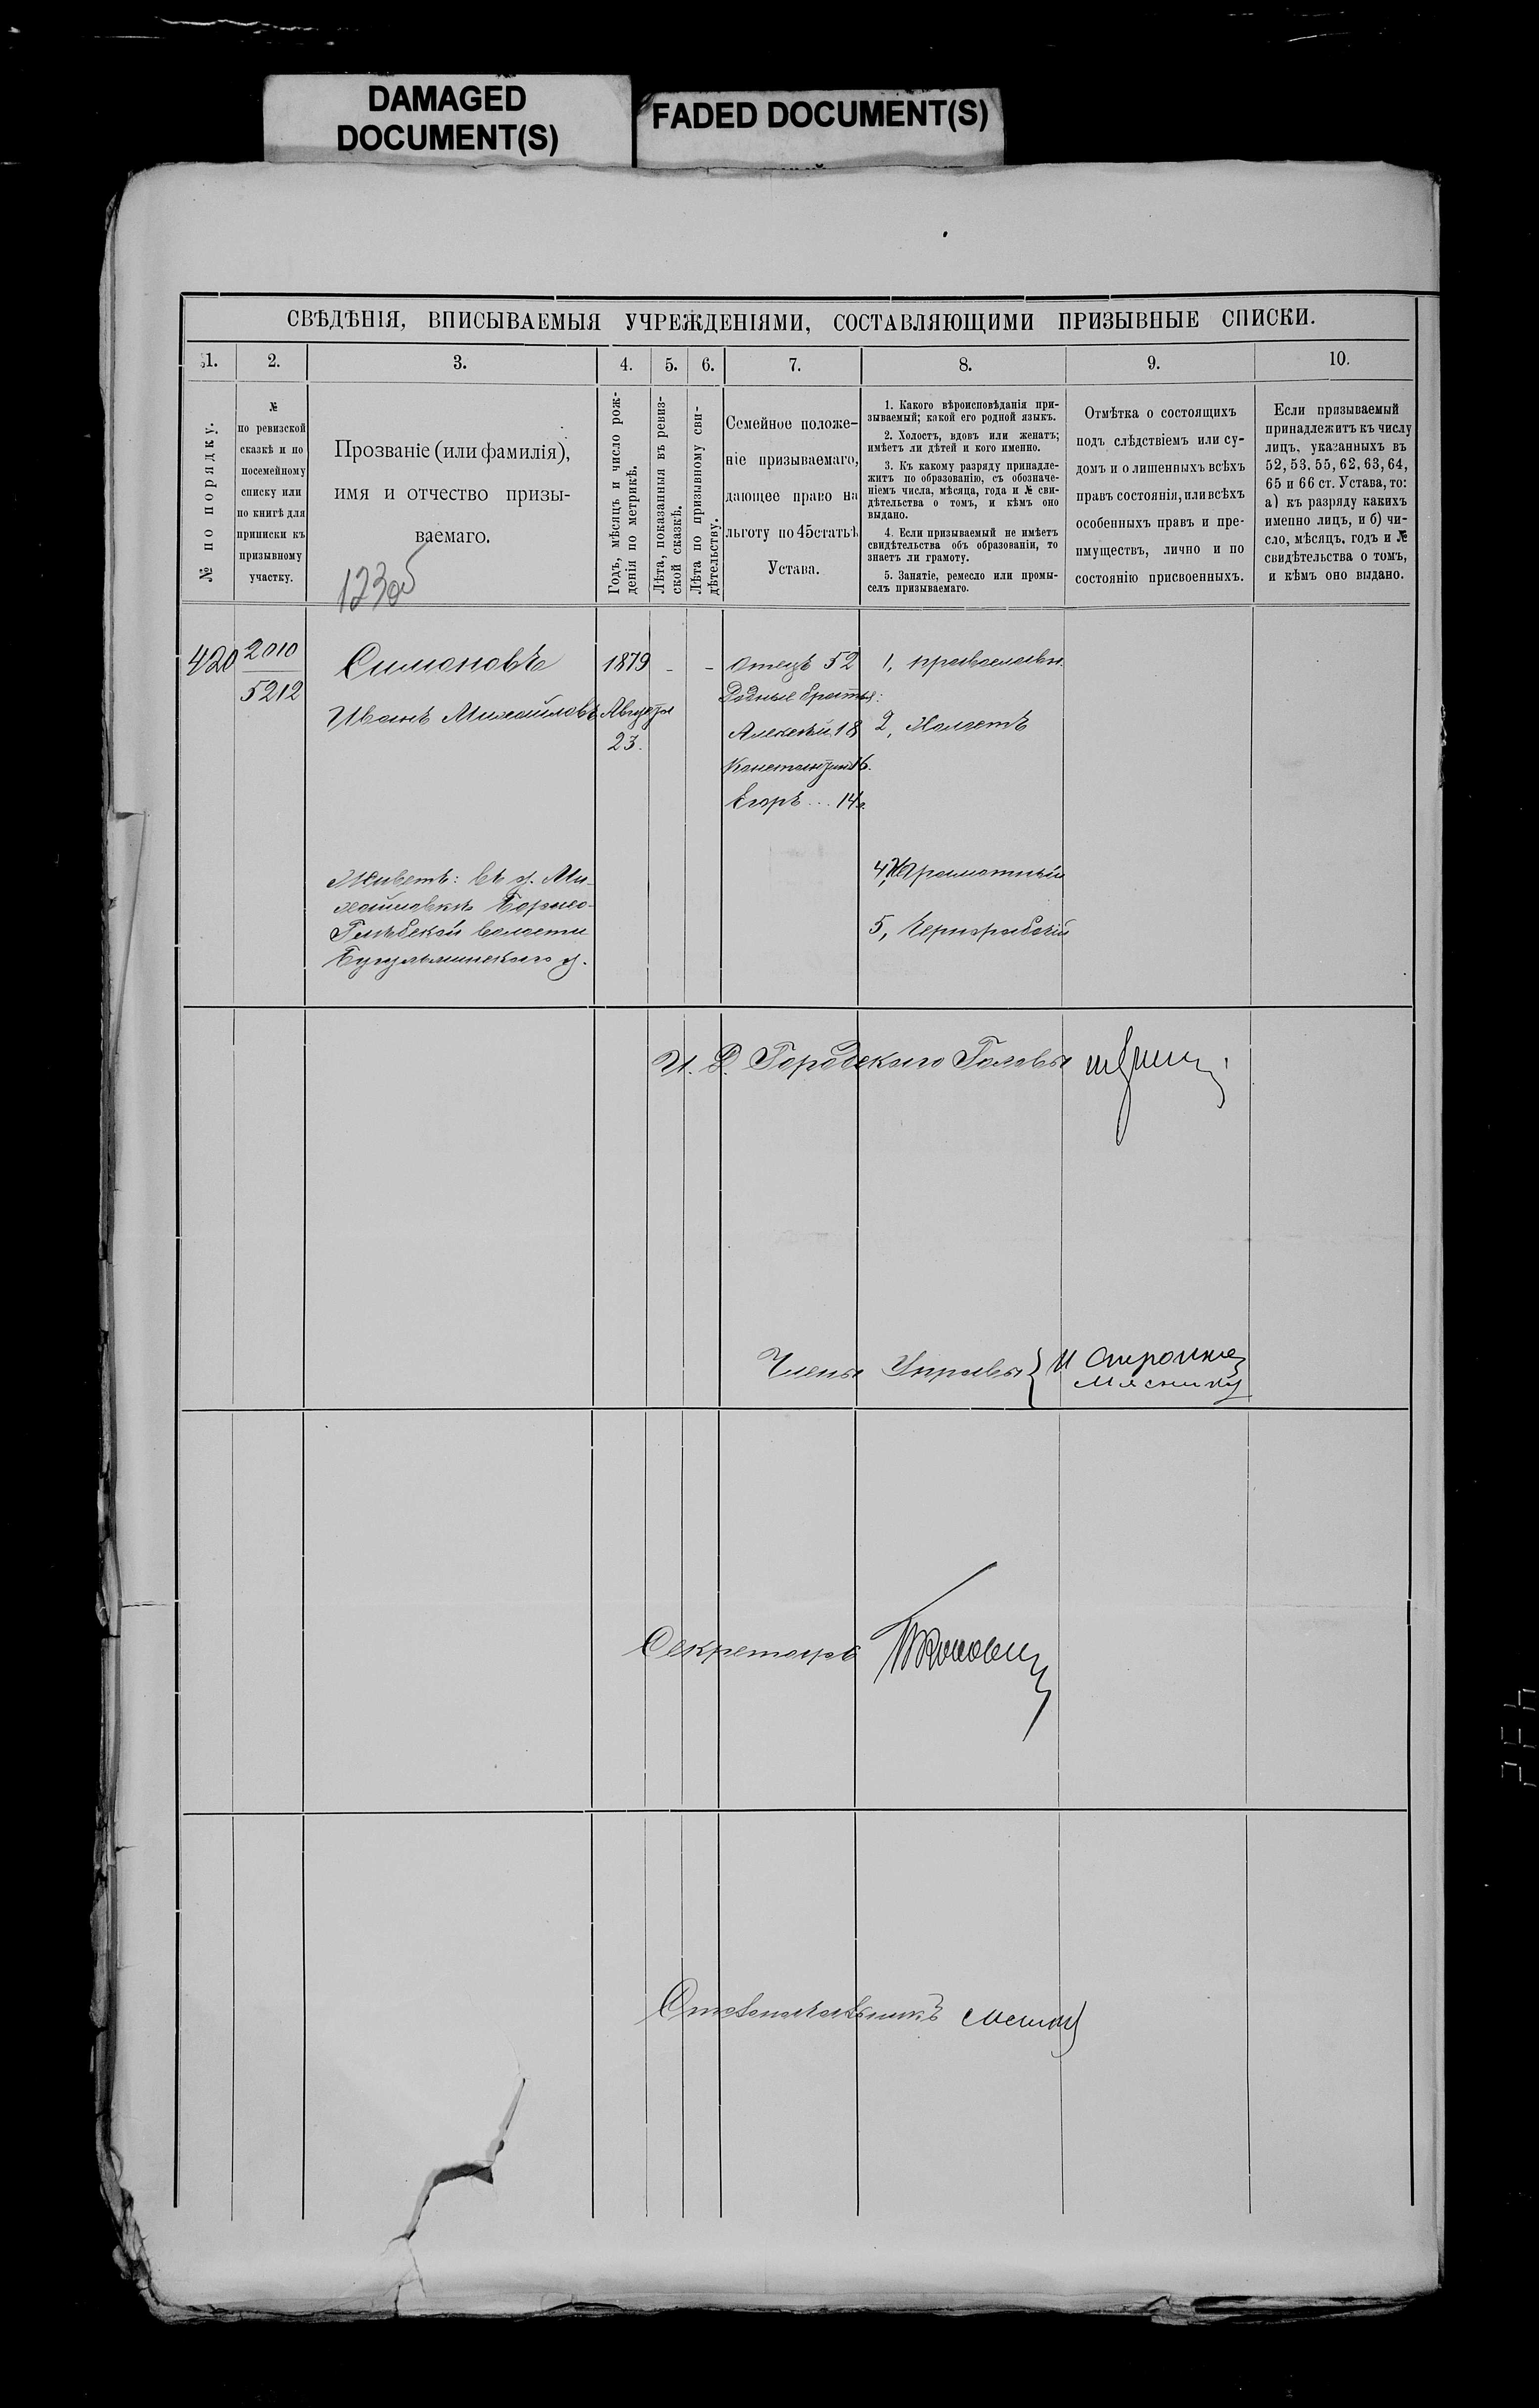 DAMAGED
DOCUMENT(S)
FADED DOCUMENT(S)
СВѢДѢНІЯ, ВПИСЫВАЕМЫЯ УЧРЕЖДЕНІЯМИ, СОСТАВЛЯЮЩИМИ ПРИЗЫВНЫЕ СПИСКИ.
1.
2.
3.
4.
5.
6.
7.
8.
9.
10.
№ по порядку.
№
по ревизской
сказкѣ и по
посемейному
списку или
по книгѣ для
приписки къ
призывному
участку.
Прозваніе (или фамилія),
имя и отчество призы-
ваемаго.
Годъ, мѣсяцъ и число рож-
денія по метрикѣ.
Лѣта, показанныя въ ревиз-
ской сказкѣ.
Лѣта по призывному сви-
дѣтельству.
Семейное положе-
ніе призываемаго,
дающее право на
льготу по 45 статьѣ
Устава.
1. Какого вѣроисповѣданія при-
зываемый; какой его родной языкъ.
2. Холостъ, вдовъ или женатъ;
имѣетъ ли дѣтей и кого именно.
3. Къ какому разряду принадле-
житъ по образованію, съ обозначе-
ніемъ числа, мѣсяца, года и № сви-
дѣтельства о томъ, и кѣмъ оно
выдано.
4. Если призываемый не имѣетъ
свидѣтельства объ образованіи, то
знаетъ ли грамоту.
5. Занятіе, ремесло или промы-
селъ призываемаго.
Отмѣтка о состоящихъ
подъ слѣдствіемъ или су-
домъ и о лишенныхъ всѣхъ
правъ состоянія, или всѣхъ
особенныхъ правъ и пре-
имуществъ, лично и по
состоянію присвоенныхъ.
Если призываемый
принадлежитъ къ числу
лицъ, указанныхъ въ
52, 53, 55, 62, 63, 64,
65 и 66 ст. Устава, то:
а) къ разряду какихъ
именно лицъ, и б) чи-
сло, мѣсяцъ, годъ и №
свидѣтельства о томъ,
и кѣмъ оно выдано.
420
2010
5212
Симоновъ
Иванъ Михайловъ
Живетъ: въ д. Ми-
хайловкѣ Борисо-
Глѣбской волости
Бугульминскаго у.
1879
Августа
23.
-
-
Отецъ 52
Родные братья:
Алексѣй 18
Константинъ 16.
Егоръ... 14
1, православн.
2, Холостъ
4, Неграмотный
5, Чернорабочій
И. Д. Городского Головы
Члены Управы
Секретарь